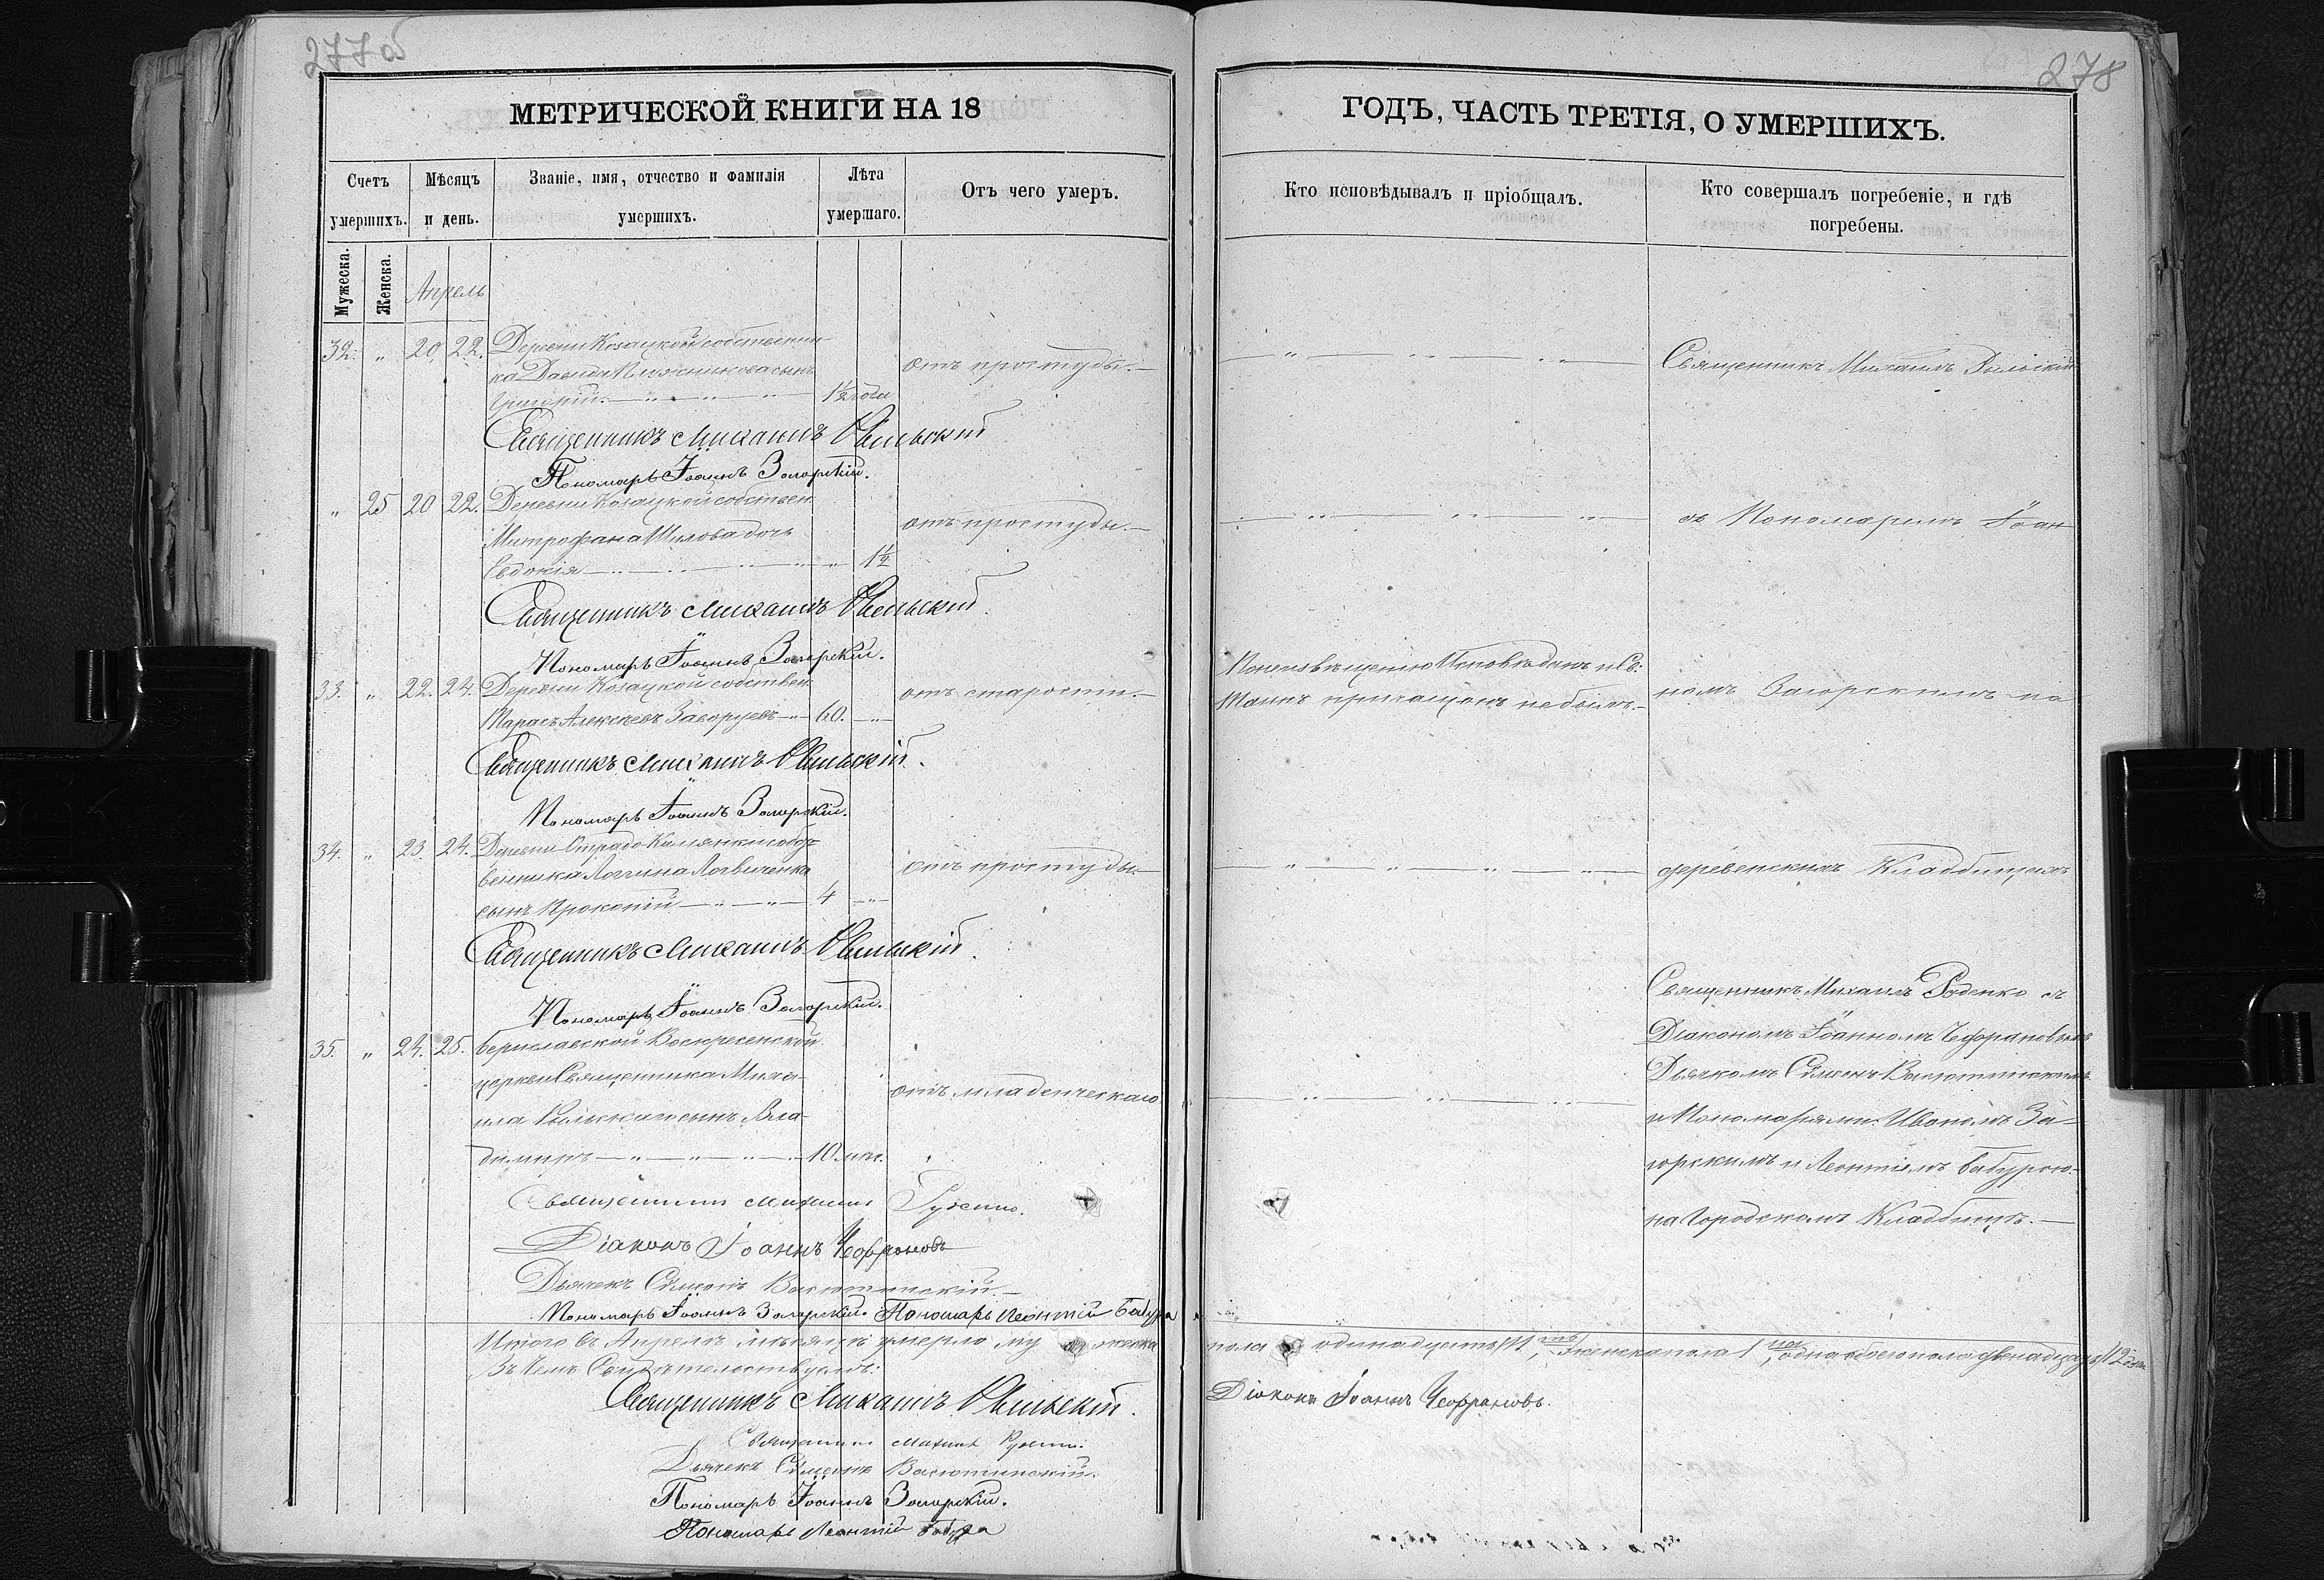 277об
МЕТРИЧЕСКОЙ КНИГИ НА 18
Счетъ умершихъ.
Мѣсяцъ и день.
Званіе, имя, отчество и фамилія умершихъ.
Лѣта умершаго.
Отъ чего умеръ.
Мужеска.
Женска.
Апрель
32. " 20 22. Деревни Козацкой собственни-
ка Давида сынъ отъ простуды.—
Григорій.— 1½ года
Священникъ Михаилъ
Пономарь Іоаннъ Загорскій.
" 25 20 22. Деревни Козацкой собствен.
Митрофана Шилова дочь отъ простуды.—
Евдокія — 1½
Священникъ Михаилъ
Пономарь Іоаннъ Загорскій.
33. " 22. 24. Деревни Козацкой собствен. отъ старости.—
Тарасъ Алексѣевъ 60.
Священникъ Михаилъ
Пономарь Іоаннъ Загорскій.
34. " 23. 24. Деревни собст-
венника Логвиненка отъ простуды.—
сынъ Прокопій — 4
Священникъ Михаилъ
Пономарь Іоаннъ Загорскій.
35. " 24. 25. Бериславской Воскресенской
церкви Священника Миха-
ила сынъ Вла- отъ младенческаго
диміръ — 10 мѣс.
Священникъ Михаилъ Руденко.
Діаконъ Іоаннъ Чефрановъ
Дьячекъ Сѵмеонъ Васютинскій.—
Пономарь Іоаннъ Загорскій. Пономарь Леонтій Бабура
Итого въ Апрелѣ мѣсяцѣ умерло му женска
Въ чемъ Свидѣтельствуемъ:
Священникъ Михаилъ
Священникъ Михаилъ Руденко.
Дьячекъ Сѵмеонъ Васютинскій.
Пономарь Іоаннъ Загорскій.
Пономарь Леонтій Бабура
278
ГОДЪ, ЧАСТЬ ТРЕТІЯ, О УМЕРШИХЪ.
Кто исповѣдывалъ и пріобщалъ.
Кто совершалъ погребеніе, и гдѣ погребены.
Священникъ Михаилъ
съ Пономаремъ Іоан-
Исповѣданъ и Св:
Таинъ пріобщонъ не былъ.—
номъ Загорскимъ на
деревенскихъ Кладбищахъ
Священникъ Михаилъ Руденко съ
Діакономъ Іоанномъ Чефрановымъ
Дьячкомъ Сѵмеонъ Васютинскимъ
и Пономарями: Иваномъ За-
горскимъ и Леонтіемъ Бабурою
на Городскомъ Кладбищѣ.—
пола одинадцать 11, женска пола 1 одна обоего пола двенадцать 12
Діаконъ Іоаннъ Чефрановъ.